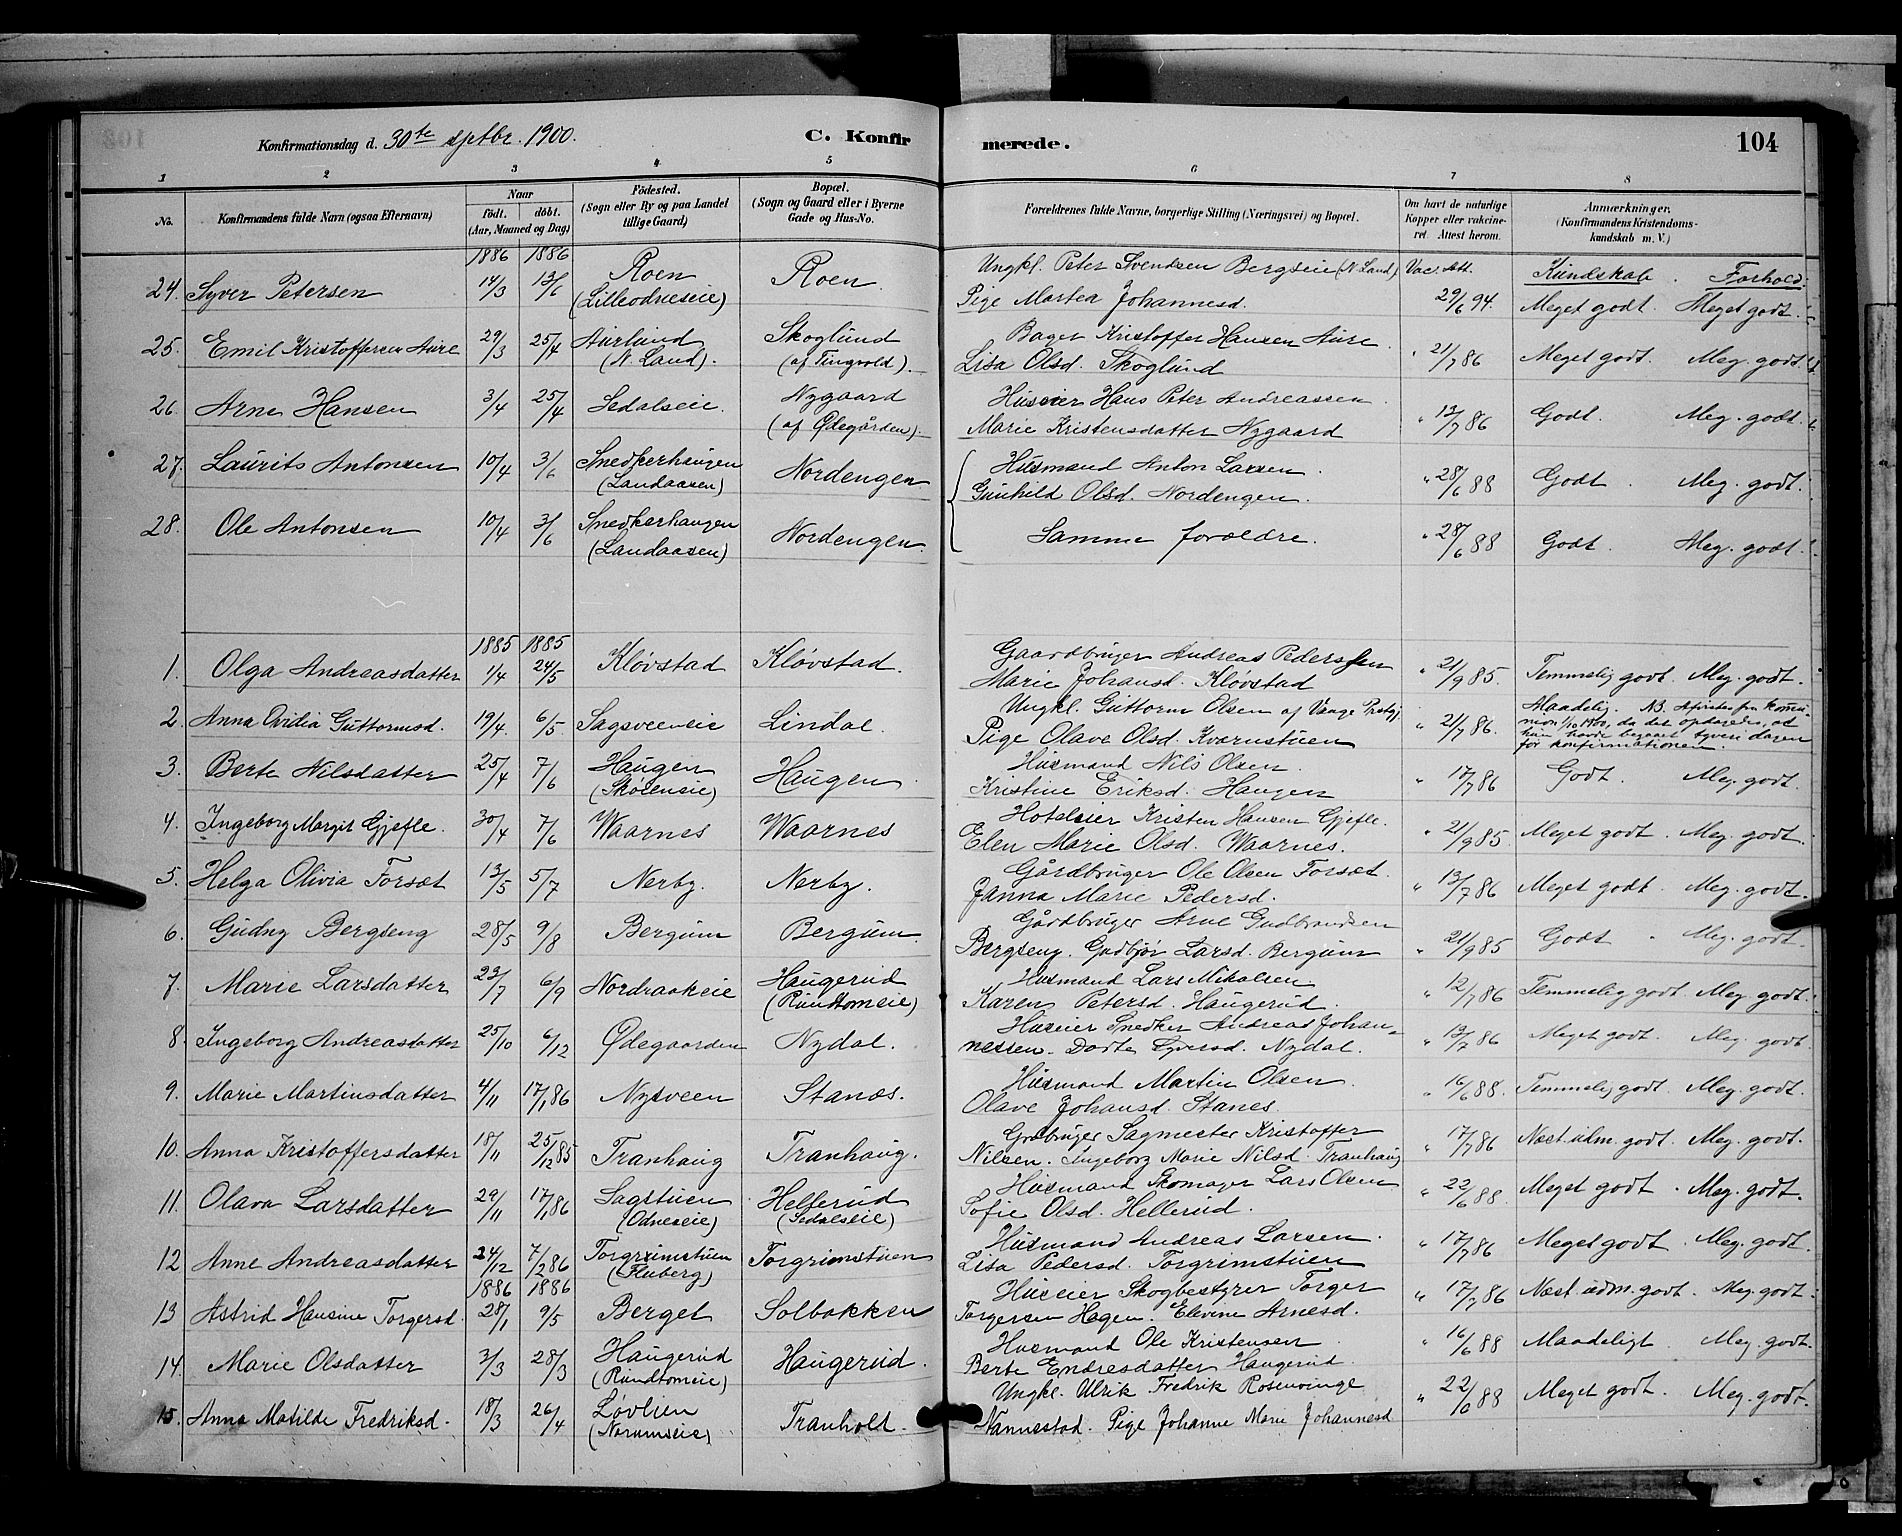 Konfirmationsdag d. 30te septbr. 1900. C. Konfir merede. 104
1 2 3 4 5 6 7 8
No. Konfirmandens fulde Navn (ogsaa Efternavn) Naar födt. döbt. (Aar, Maaned og Dag) Födested. (Sogn eller By og paa Landet tillige Gaard) Bopæl. (Sogn og Gaard eller i Byerne Gade og Hus-No. Forældrenes fulde Navne, borgerlige Stilling (Næringsvei) og Bopæl. Om havt de naturlige Kopper eller vakcineret. Attest herom. Anmærkninger. (Konfirmandens Kristendomskundskab m. V.)
1886 1886 Vac. Att. Kundskab. Forhold:
24. Syver Petersen 14/3 13/6 Roen (Lilleodneseie) Roen. Ungkl. Peter Svendsen Bergseie (N. Land) Pige Martea Johannesd. 29/6 94. Meget godt. Meget godt.
25. Emil Kristoffersen Aure 29/3 25/4 Aurlund (N. Land). Skoglund (af Tingvold). Bager Kristoffer Hansen Aure. Lisa Olsd. Skoglund " 21/7 86 Meget godt. Meg. godt.
26. Arne Hansen 3/4 25/4 Sedalseie. Nygaard (af Ødegården). Huseier Hans Peter Andreassen. Marie Kristensdatter Nygaard " 13/7 86 Godt. Meg. godt.
27. Laurits Antonsen 10/4 3/6 Snedkerhaugen (Landaasen) Nordengen Husmand Anton Larsen. Gunhild Olsd. Nordengen. " 28/6 88 Godt. Meg. godt.
28. Ole Antonsen 10/4 3/6 Snedkerhaugen (Landaasen) Nordengen. Samme forældre. " 28/6 88 Godt. Meg. godt.
1885 1885
1. Olga Andreasdatter 1/4 24/5 Kløvstad Kløvstad. Gaardbruger Andreas Pederssen Marie Johansd. Kløvstad " 21/9 85. Temmelig godt. Meg. godt.
2. Anna Ovidia Guttormsd. 19/4. 6/5 Sagsveeneie Lindal. Ungkl. Guttorm Olsen af Vaage Prstgj. Pige Olave Olsd. Kvernstuen " 21/7 86. Maadelig. NB. fra kommunion 1/10 1900, da det opdagedes, at hun havde begaaet tyveri dagen før konfirmationen.
3. Berte Nilsdatter 25/4 7/6 Haugen (Skøienseie) Haugen. Husmand Nils Olsen. Kristine Eriksd. Haugen " 17/7 86 Godt. Meg. godt.
4. Ingeborg Margit Gjefle. 30/4 7/6 Waarnes Waarnes Hoteleier Kristen Hansen Gjefle. Elen Marie Olsd. Waarnes. " 21/9 85. Meget godt. Meg. godt.
5. Helga Olivia Forsæt 13/5 5/7 Nerby. Nerby. Gårdbruger Ole Olsen Forsæt. Janna Marie Pedersd. " 13/7 86 Meget godt. Meg. godt.
6. Gudny Bergseng 28/5 9/8 Bergum Bergum. Gårdbruger Arne Gudbrandsen Bergseng. Gudbjør Larsd. Bergum " 21/9 85 Godt. Meg. godt.
7. Marie Larsdatter 23/7 6/9 Nordraakeie Haugerud (Rundtomeie) Husmand Lars Mikalsen Karen Petersd. Haugerud. " 12/7 86 Temmelig godt. Meg. godt.
8. Ingeborg Andreasdatter 25/10 6/12 Ødegaarden Nydal. Huseier Snedker Andreas Johannessen. Dorte Syversd. Nydal. " 13/7 86 Meget godt. Meg. godt.
9. Marie Martinsdatter 4/11 17/1 86 Nysveen Stanæs. Husmand Martin Olsen. Olave Johansd. Stanes. " 16/6 88. Temmelig godt. Meg. godt.
10. Anna Kristoffersdatter 18/11 25/12 85 Tranhaug Tranhaug. Grdbruger Sagmester Kristoffer Nilsen. Ingeborg Marie Nilsd. Tranhaug " 17/7 86 Næst. udm. godt. Meg. godt.
11. Olava Larsdatter 29/11 17/1 86 Sagstuen (Odneseie) Hellerud (Sedalseie) Husmand Skomager Lars Olsen Sofie Olsd. Hellerud. " 22/6 88. Meget godt. Meg. godt.
12 Anne Andreasdatter 24/12 7/2 86 Torgrimstuen (Fluberg) Torgrimstuen Husmand Andreas Larsen. Lisa Pedersd. Torgrimstuen " 17/7 86 Meget godt. Meg. godt.
1886 1886
13 Astrid Hansine Torgersd. 28/1 9/5 Berget Solbakken Huseier Skogbestyrer Torger Torgersen Hagen. Elevine Arnesd. " 17/7 86 Næst. udm. godt. Meg. godt.
14 Marie Olsdatter 3/3 28/3 Haugerud (Rundtomeie) Haugerud. Husmand Ole Kristensen Berte Endresdatter Haugerud. " 16/6 88 Maadeligt Meg. godt.
15. Anna Matilde Fredriksd. 18/3 26/4 Løvlien (Norumseie) Tranholt. Ungkl. Ulrik Fredrik Rosenvinge Nannestad. Pige Johanne Marie Johannesd " 22/6 88 Meget godt. Meg. godt.